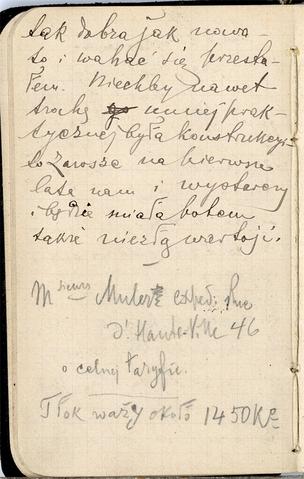 tak dobra jak nowa-
to i wahać się przesta-
łem. Niechby nawet
trochę mniej prak-
tycznej była konstrukcyi
to zawsze na pierwsze
lata nam i wystarczy
i będzie miała potem
także niezłą wartość.
Msieurs Muler expedi. Rue
d'Haute-Ville 46
o celnej taryfie.
Tłok waży około 1450 Ko